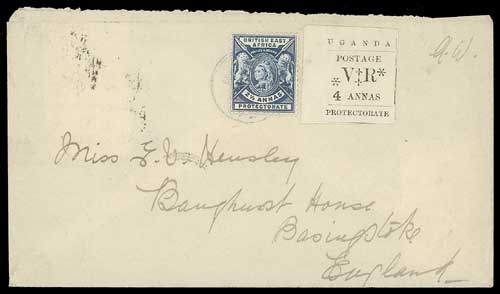 BRITISH EAST
AFRICA
2½ ANNAS
PROTECTORATE
UGANDA
POSTAGE
V‡R*
* 4 ANNAS
PROTECTORATE
Miss Hensley
Baughurst House
Basingstoke
England